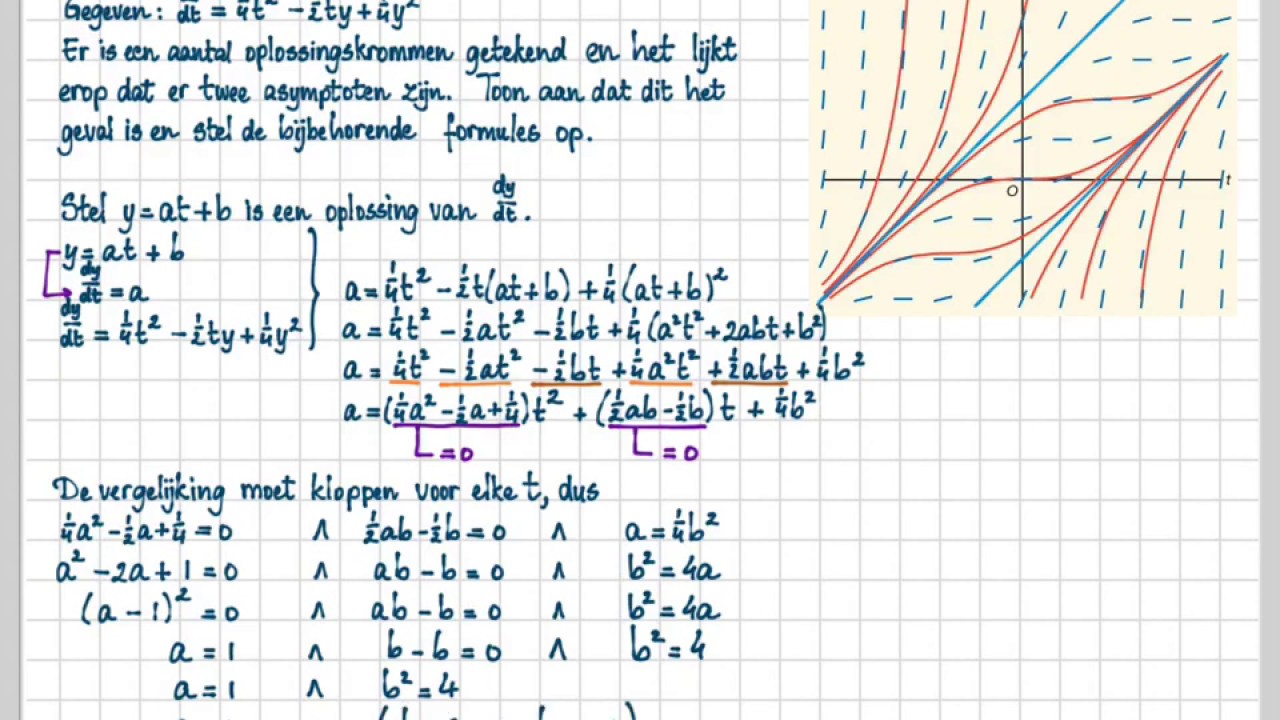 Gegeven: dy/dt = ¼t² - ½ty + ¼y²
Er is een aantal oplossingskrommen getekend en het lijkt
erop dat er twee asymptoten zijn. Toon aan dat dit het
geval is en stel de bijbehorende formules op.
O
t
Stel y = at + b is een oplossing van dy/dt.
y = at + b
dy/dt = a
dy/dt = ¼t² - ½ty + ¼y²
a = ¼t² - ½t(at + b) + ¼(at + b)²
a = ¼t² - ½at² - ½bt + ¼(a²t² + 2abt + b²)
a = ¼t² - ½at² - ½bt + ¼a²t² + ½abt + ¼b²
a = (¼a² - ½a + ¼)t² + (½ab - ½b)t + ¼b²
= 0 = 0
De vergelijking moet kloppen voor elke t, dus
¼a² - ½a + ¼ = 0 ∧ ½ab - ½b = 0 ∧ a = ¼b²
a² - 2a + 1 = 0 ∧ ab - b = 0 ∧ b² = 4a
(a - 1)² = 0 ∧ ab - b = 0 ∧ b² = 4a
a = 1 ∧ b - b = 0 ∧ b² = 4
a = 1 ∧ b² = 4